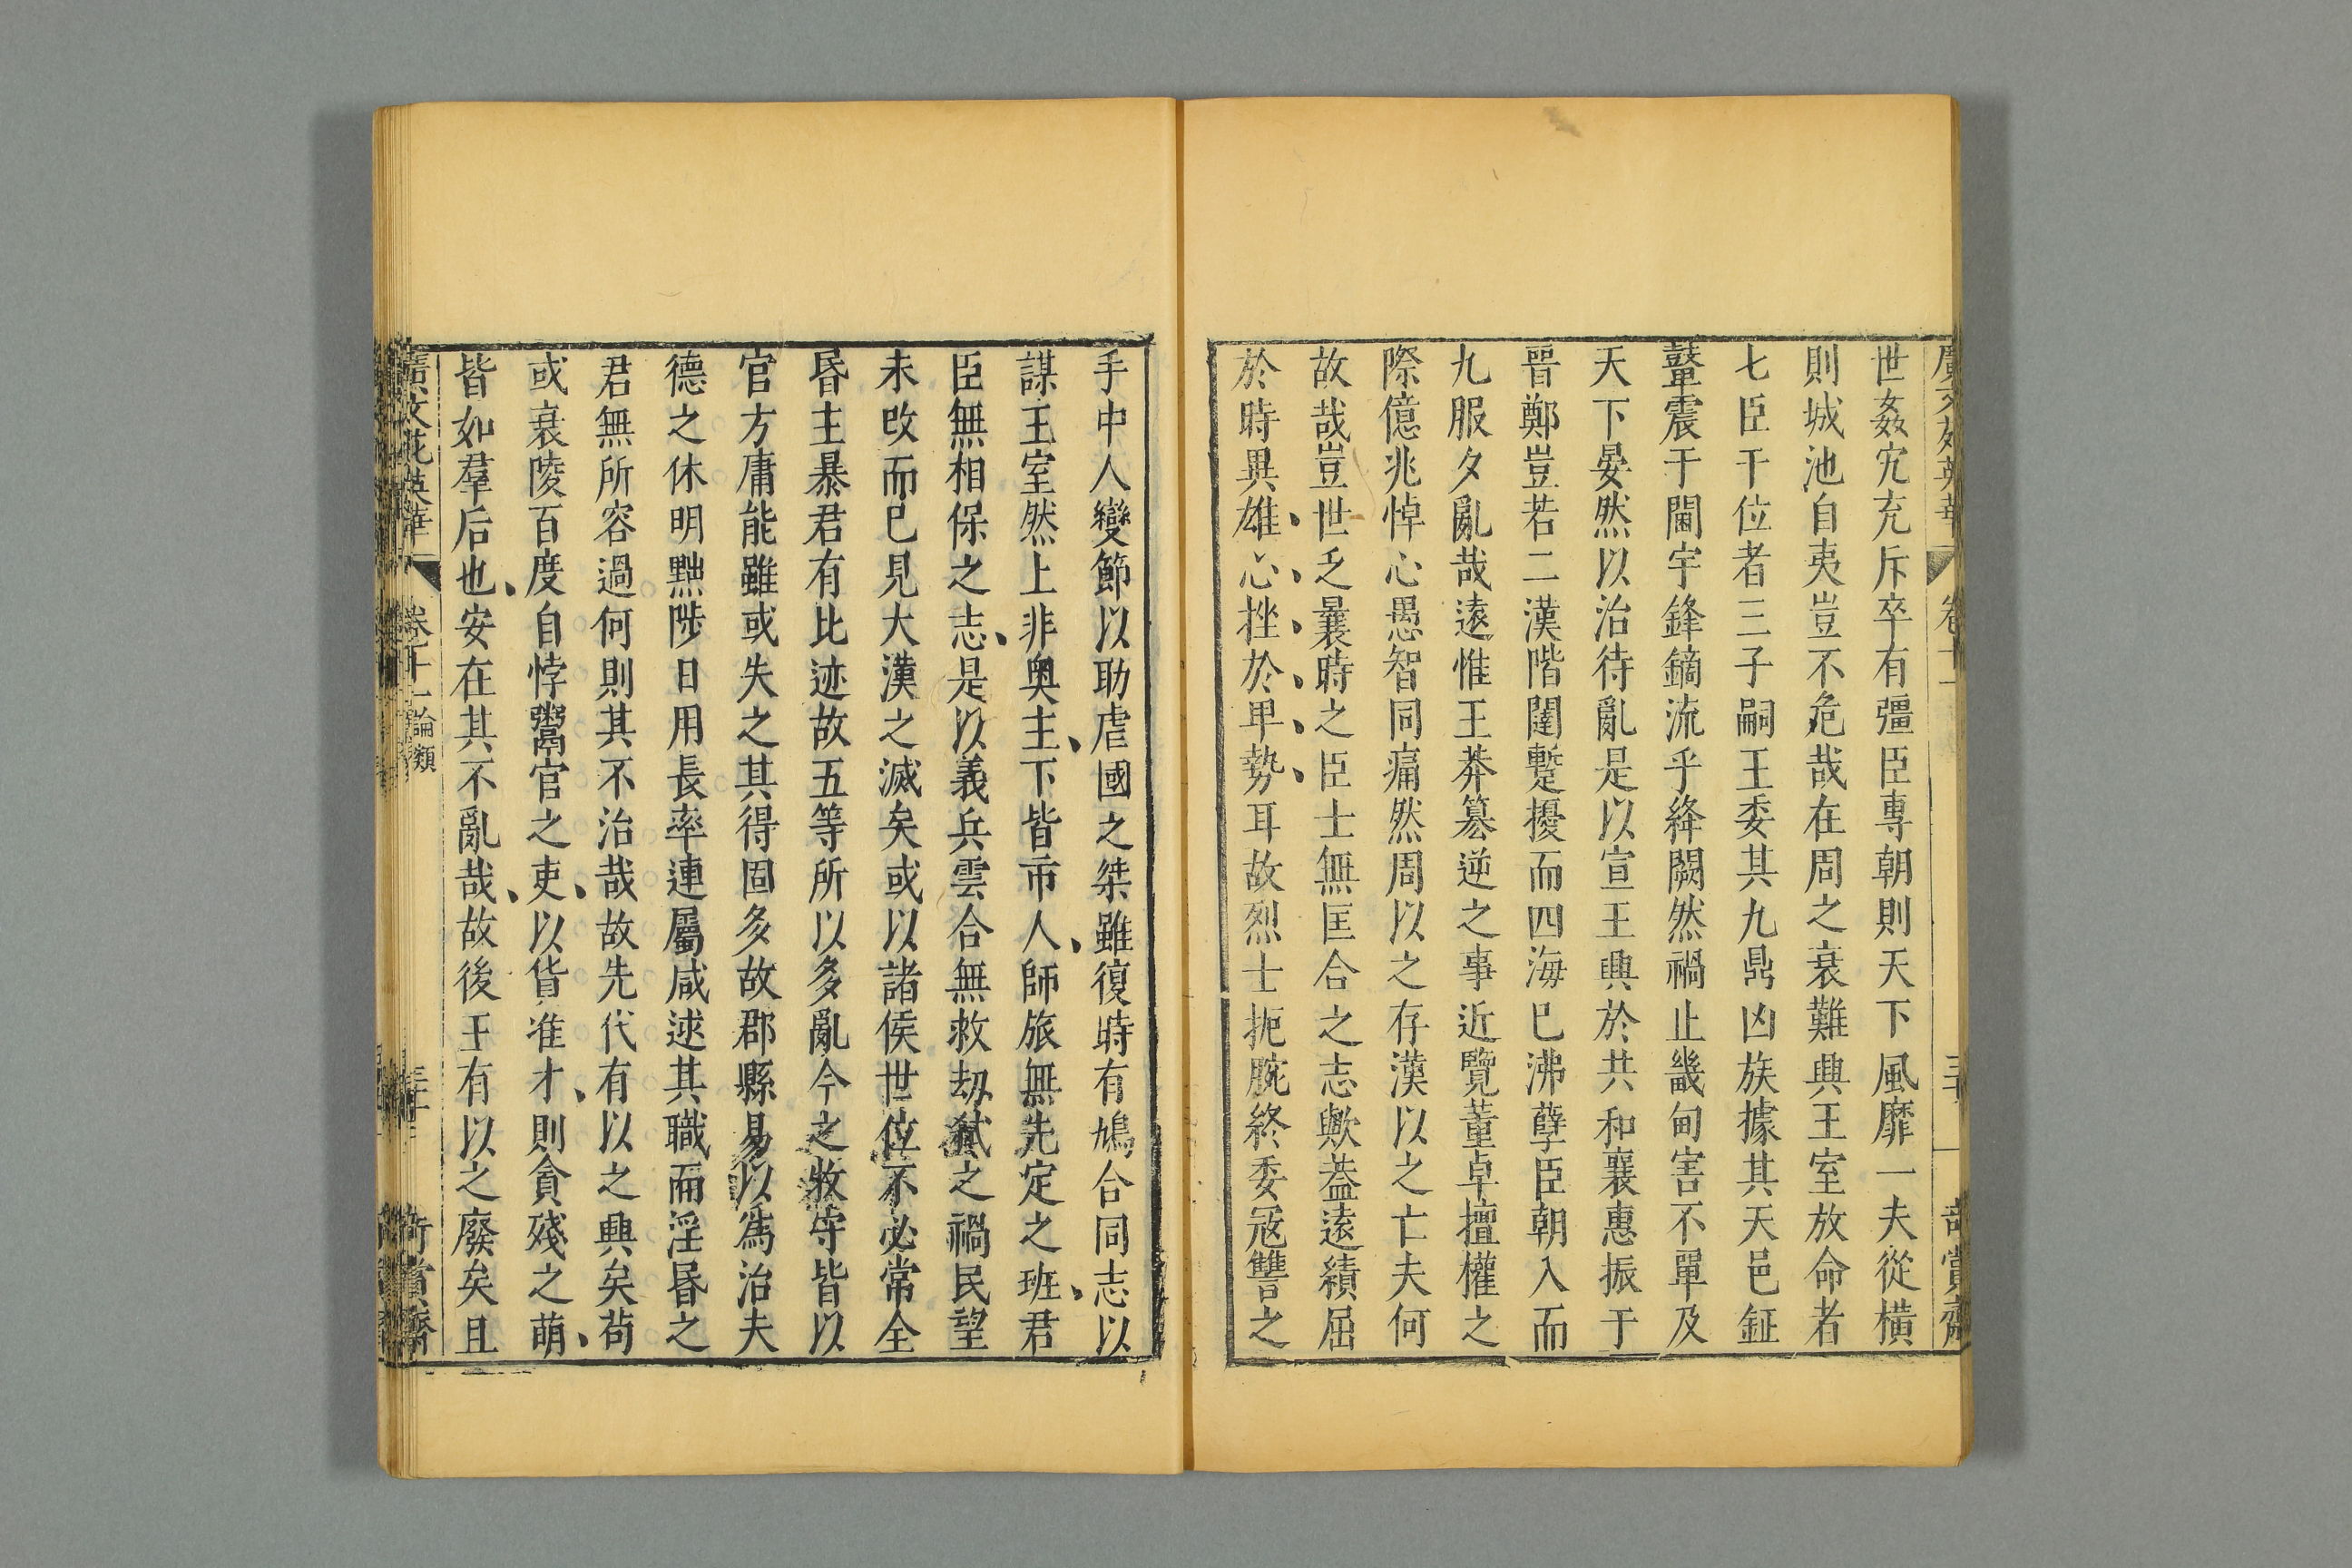 世姦宄充斥卒有彊臣專朝則天下風靡一夫從橫
則城池自夷豈不危哉在周之衰難興王室放命者
七臣干位者三子嗣王委其九鼎凶族據其天邑鉦
鼙震于閫宇鋒鏑流乎絳闕然禍止畿甸害不單及
天下晏然以治待亂是以宣王興於共和襄惠振于
晉鄭豈若二漢階闥蹔擾而四海已沸孽臣朝入而
九服夕亂哉遠惟王莽篡逆之事近覽董卓擅權之
際億兆悼心愚智同痛然周以之存漢以之亡夫何
故哉豈世乏曩時之臣士無匡合之志歟葢遠績屈
於時異雄心挫於卑勢耳故烈士扼腕終委冦讐之
手中人變節以助虐國之桀雖復時有鳩合同志以
謀王室然上非奧主下皆市人師旅無先定之班君
臣無相保之志是以義兵雲合無救劫弑之禍民望
未改而已見大漢之滅矣或以諸侯世位不必常全
昏主暴君有比迹故五等所以多亂今之牧守皆以
官方庸能雖或失之其得固多故郡縣易以爲治夫
德之休明黜陟日用長率連屬咸述其職而淫昏之
君無所容過何則其不治哉故先代有以之興矣苟
或衰陵百度自悖鬻官之吏以貨准才則貪殘之萌
皆如羣后也安在其不亂哉故後王有以之廢矣且
廣文苑英華 卷十一 論類